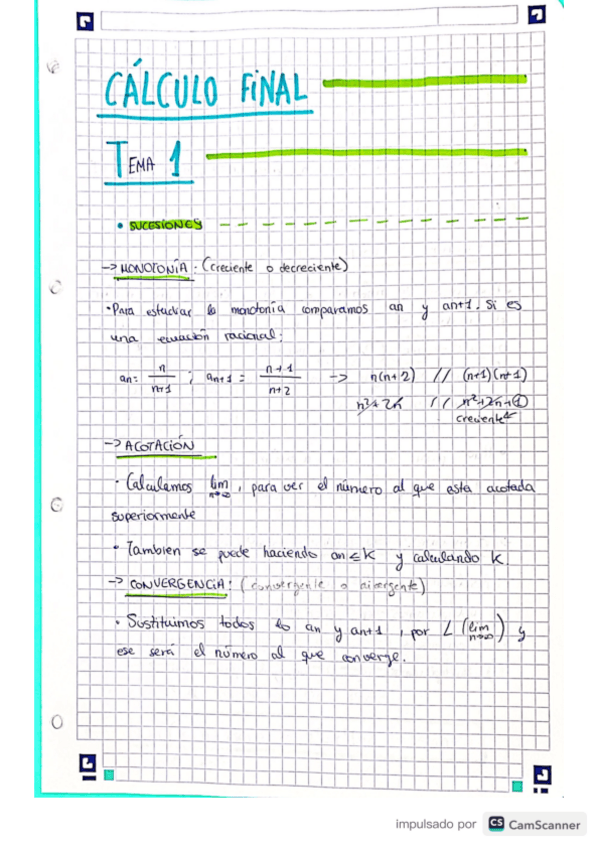 CÁLCULO FiNAL
TEMA 1
• SUCESIONES
-> MONOTONÍA: (creciente o decreciente)
• Para estudiar la monotonía comparamos an y an+1. Si es
una ecuación racional:
an = n/n+1 ; an+1 = n+1/n+2 -> n(n+2) // (n+1)(n+1)
n²+2n // n²+2n+1
creciente
-> ACOTACIÓN
• Calculamos lim n→∞, para ver el número al que esta acotada
superiormente
• Tambien se puede haciendo an ≤ K y calculando K.
-> CONVERGENCIA: (convergente o divergente)
• Sustituimos todos lo an y an+1, por L (lim n→∞) y
ese será el número al que converge.
impulsado por CS CamScanner